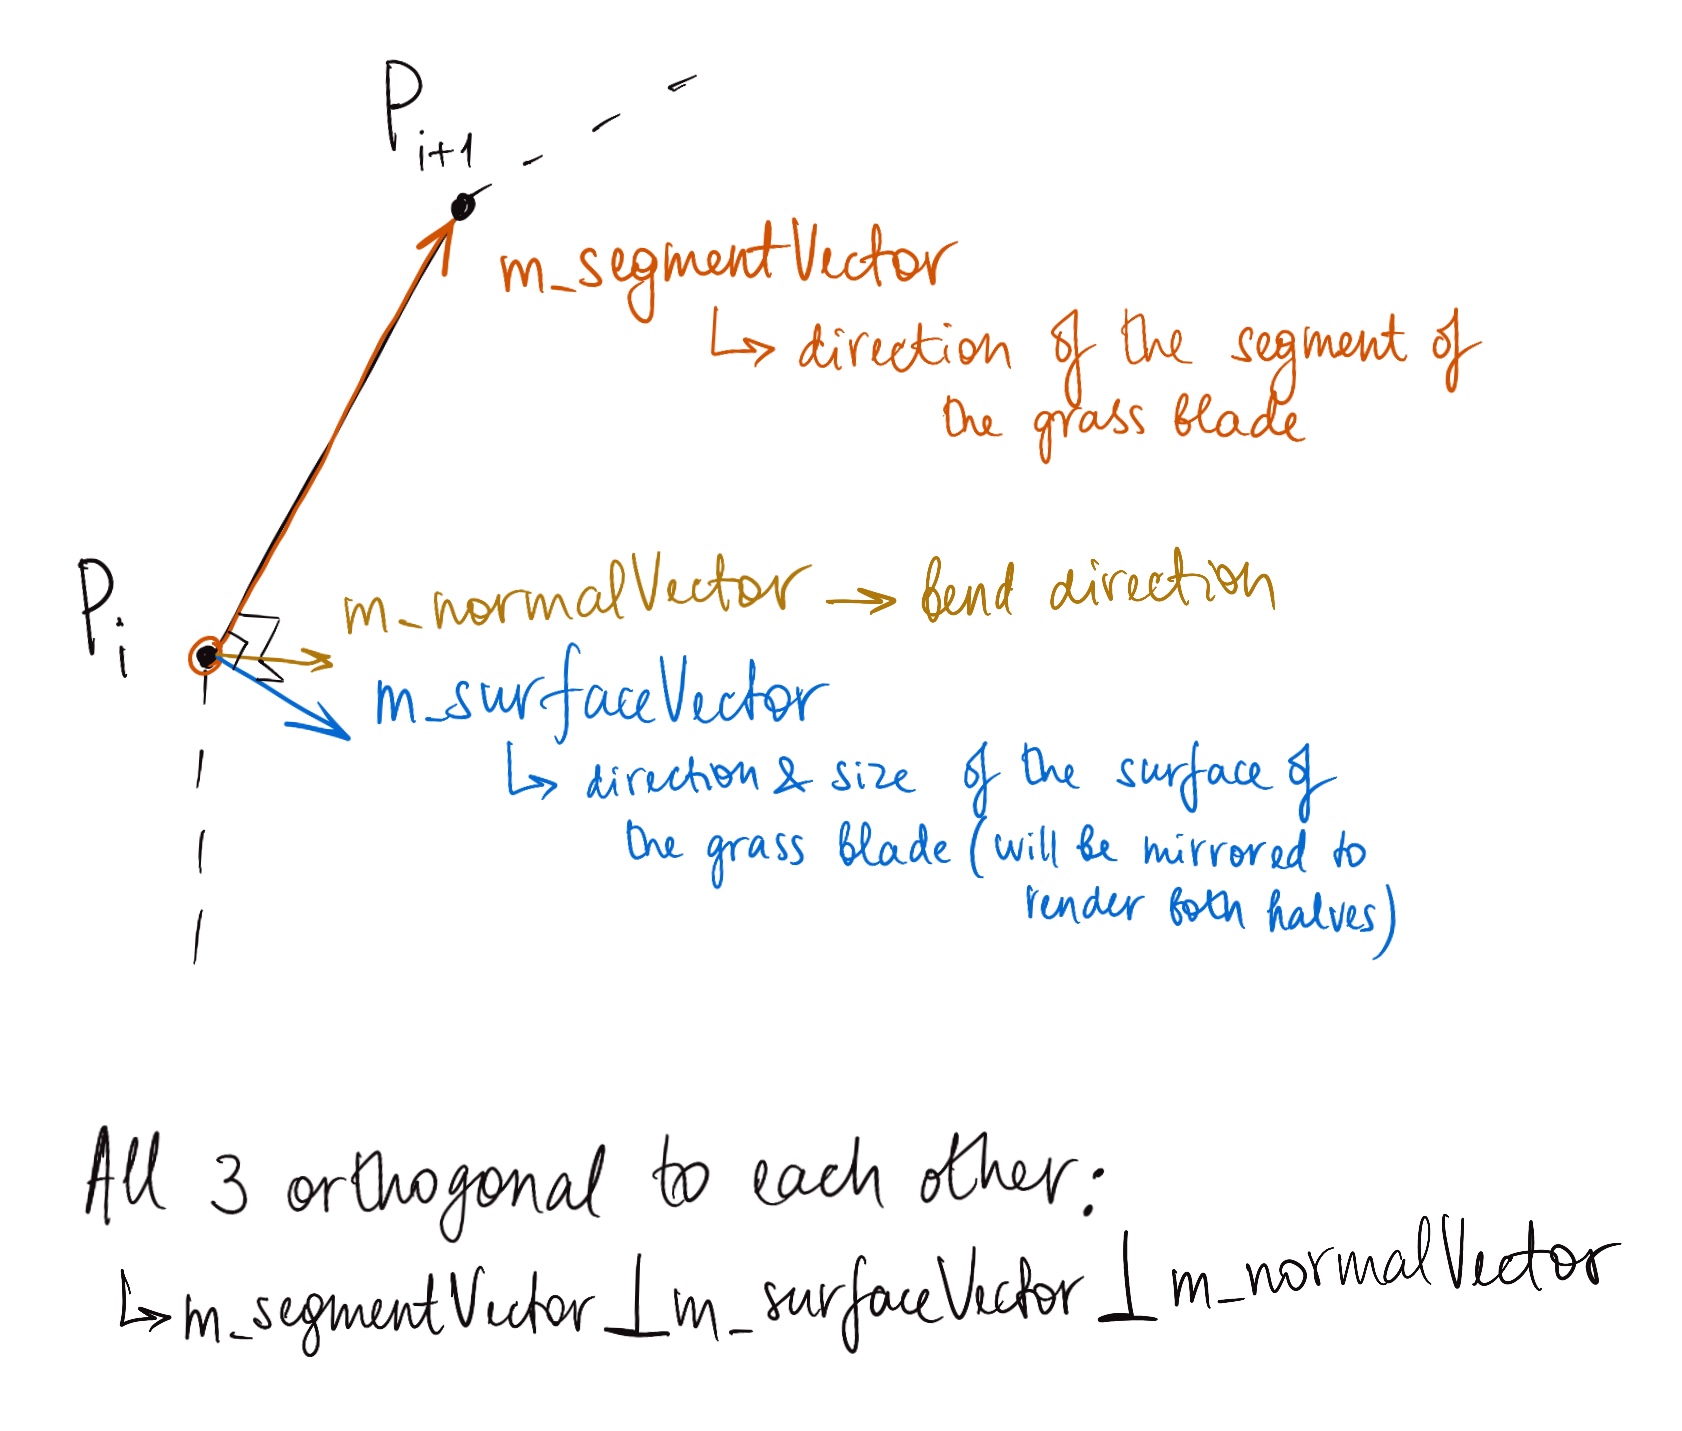 P i+1
m_segmentVector
↳ direction of the segment of
the grass blade
P i
m_normalVector → bend direction
m_surfaceVector
↳ direction & size of the surface of
the grass blade (will be mirrored to
render both halves)
All 3 orthogonal to each other:
↳ m_segmentVector ⊥ m_surfaceVector ⊥ m_normalVector